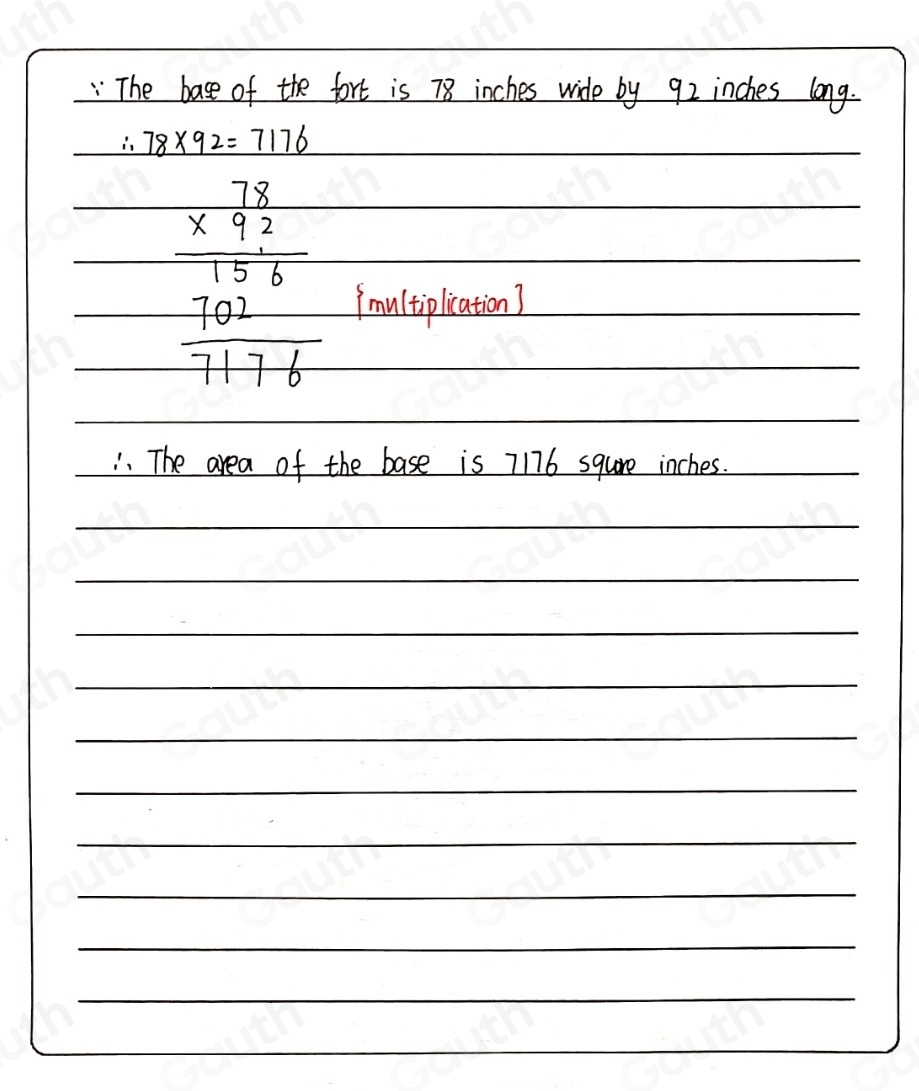 ∵ The base of the fort is 78 inches wide by 92 inches long.
∴ 78×92=7176
78
× 92
156
702
{multiplication}
7176
∴ The area of the base is 7176 square inches.
Gauth